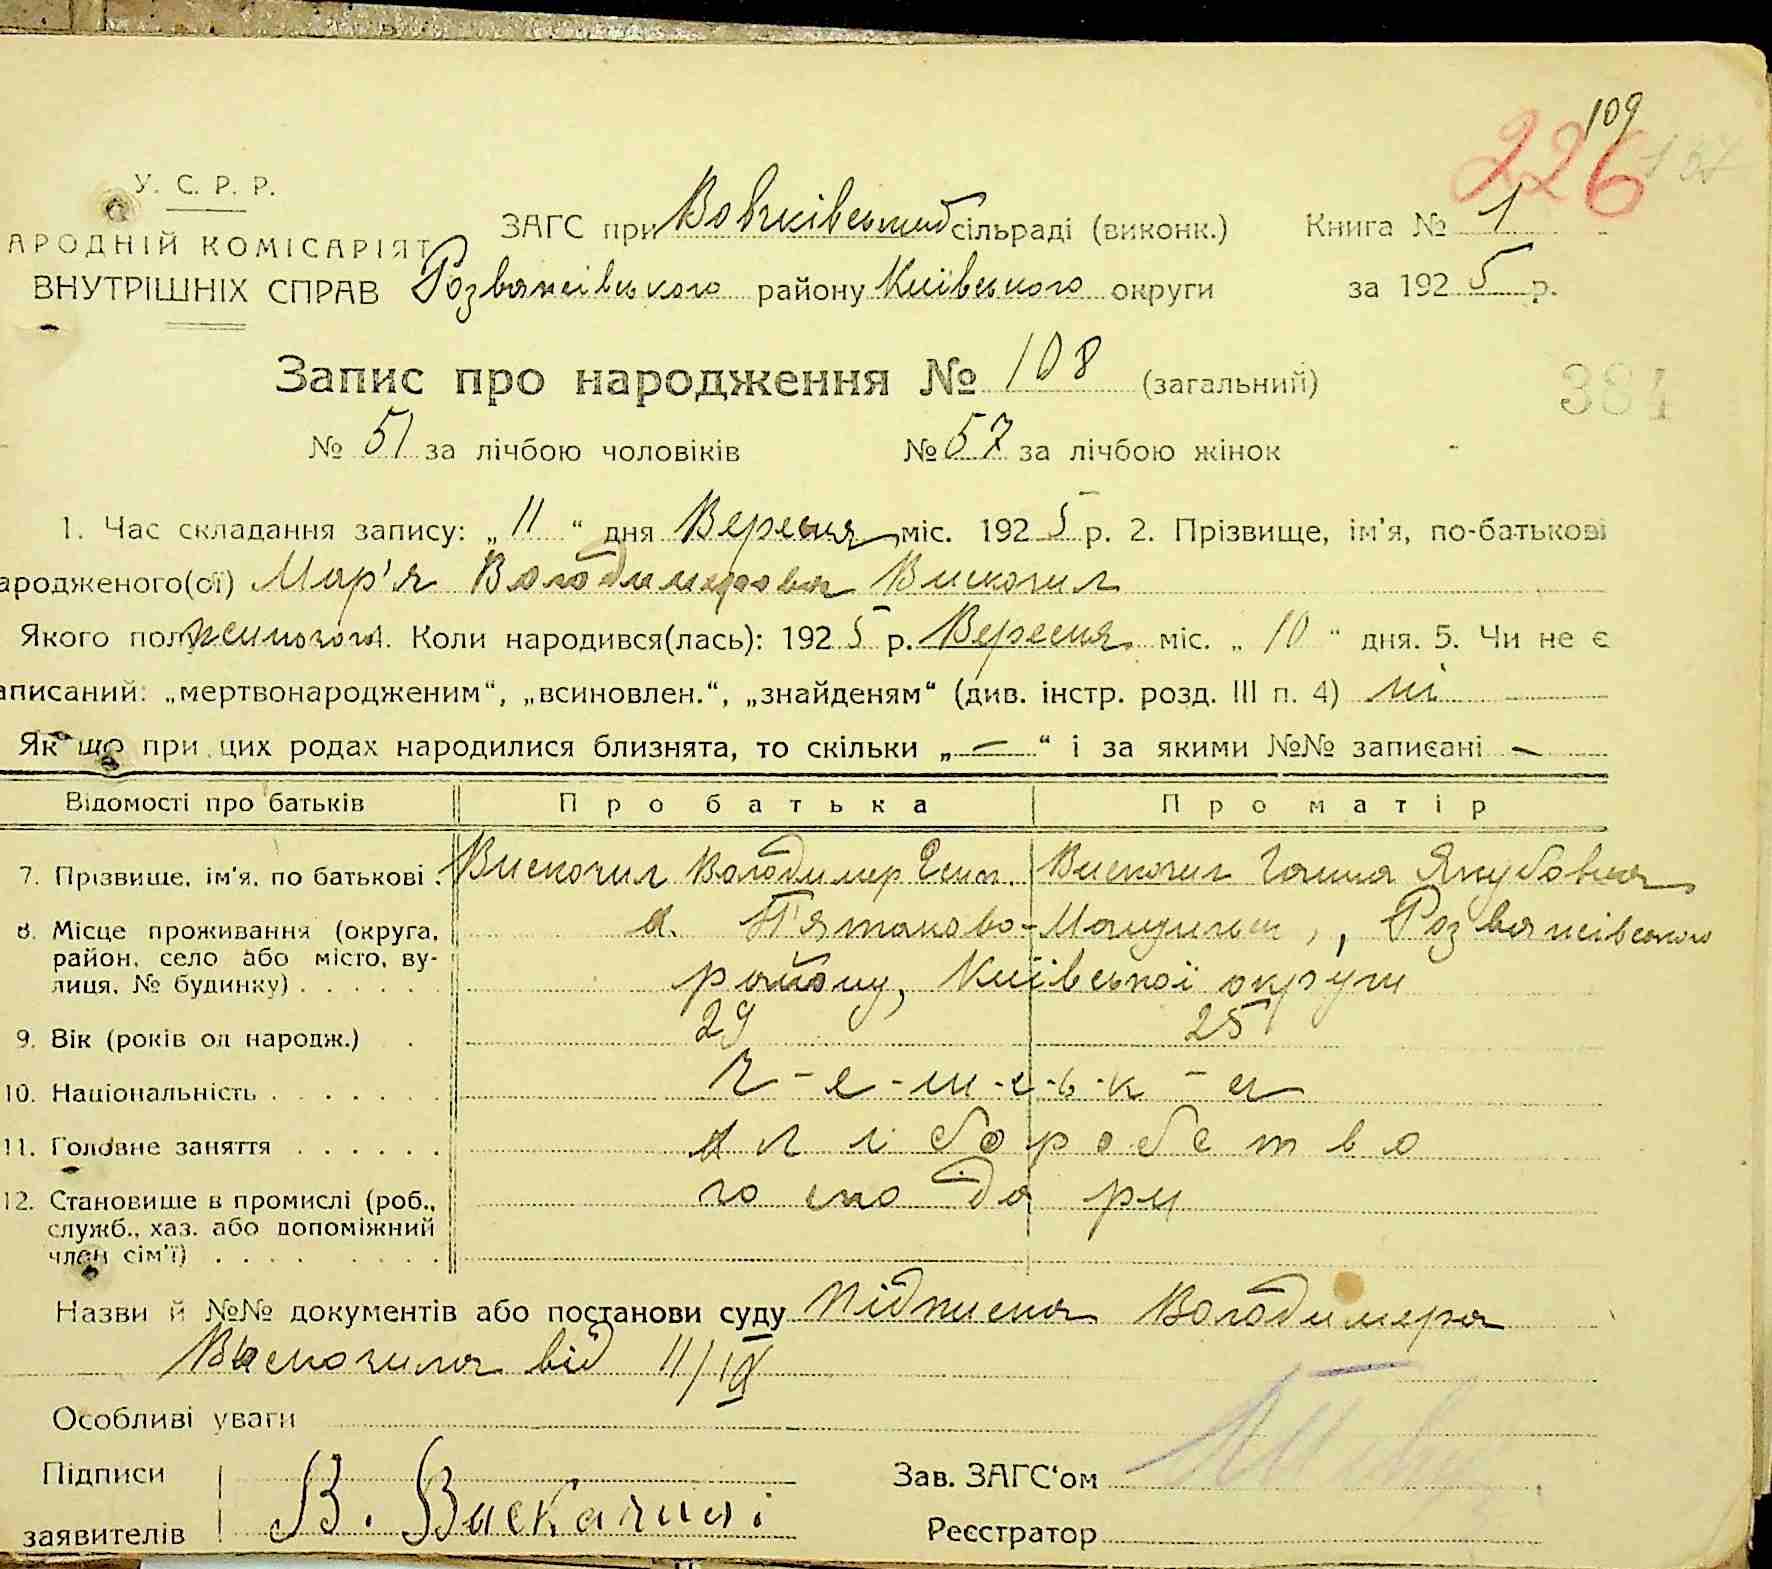 109
226
У. С. Р. Р.
АРОДНІЙ КОМІСАРІЯТ
ВНУТРІШНІХ СПРАВ
ЗАГС при Вовчківський сільраді (виконк.) Книга № 1
Розважівського району Київського округи за 1925 р.
Запис про народження № 108 (загальний)
384
№ 51 за лічбою чоловіків № 57 за лічбою жінок
1. Час складання запису: „11“ дня Вересня міс. 1925 р. 2. Прізвище, ім'я, по-батькові
ародженого(ої) Мар'я Володимировна Вискочил
Якого пол жиночого. Коли народився(лась): 1925 р. Вересня міс. „10“ дня. 5. Чи не є
аписаний: „мертвонародженим“, „всиновлен.“, „знайденям“ (див. інстр. розд. III п. 4) ні
Як що при цих родах народилися близнята, то скільки „—“ і за якими №№ записані —
Відомості про батьків Про батька Про матір
7. Прізвише, ім'я, по батькові. Вискочил Володимер Вискочил Ганна Якубовна
8. Місце проживання (округа, район, село або місто, вулиця, № будинку) Розважівського
району, Київської округи
9. Вік (років од народж.) 29 25
10. Національність ч-е-ш-с-ь-к-а
11. Головне заняття хліборобство
12. Становище в промислі (роб., служб., хаз. або допоміжний член сім'ї) господари
Назви й №№ документів або постанови суду Підписка Володимера
Вискочила від 11/IX
Особливі уваги
Підписи
заявителів В. Вискачил
Зав. ЗАГС'ом
Реєстратор